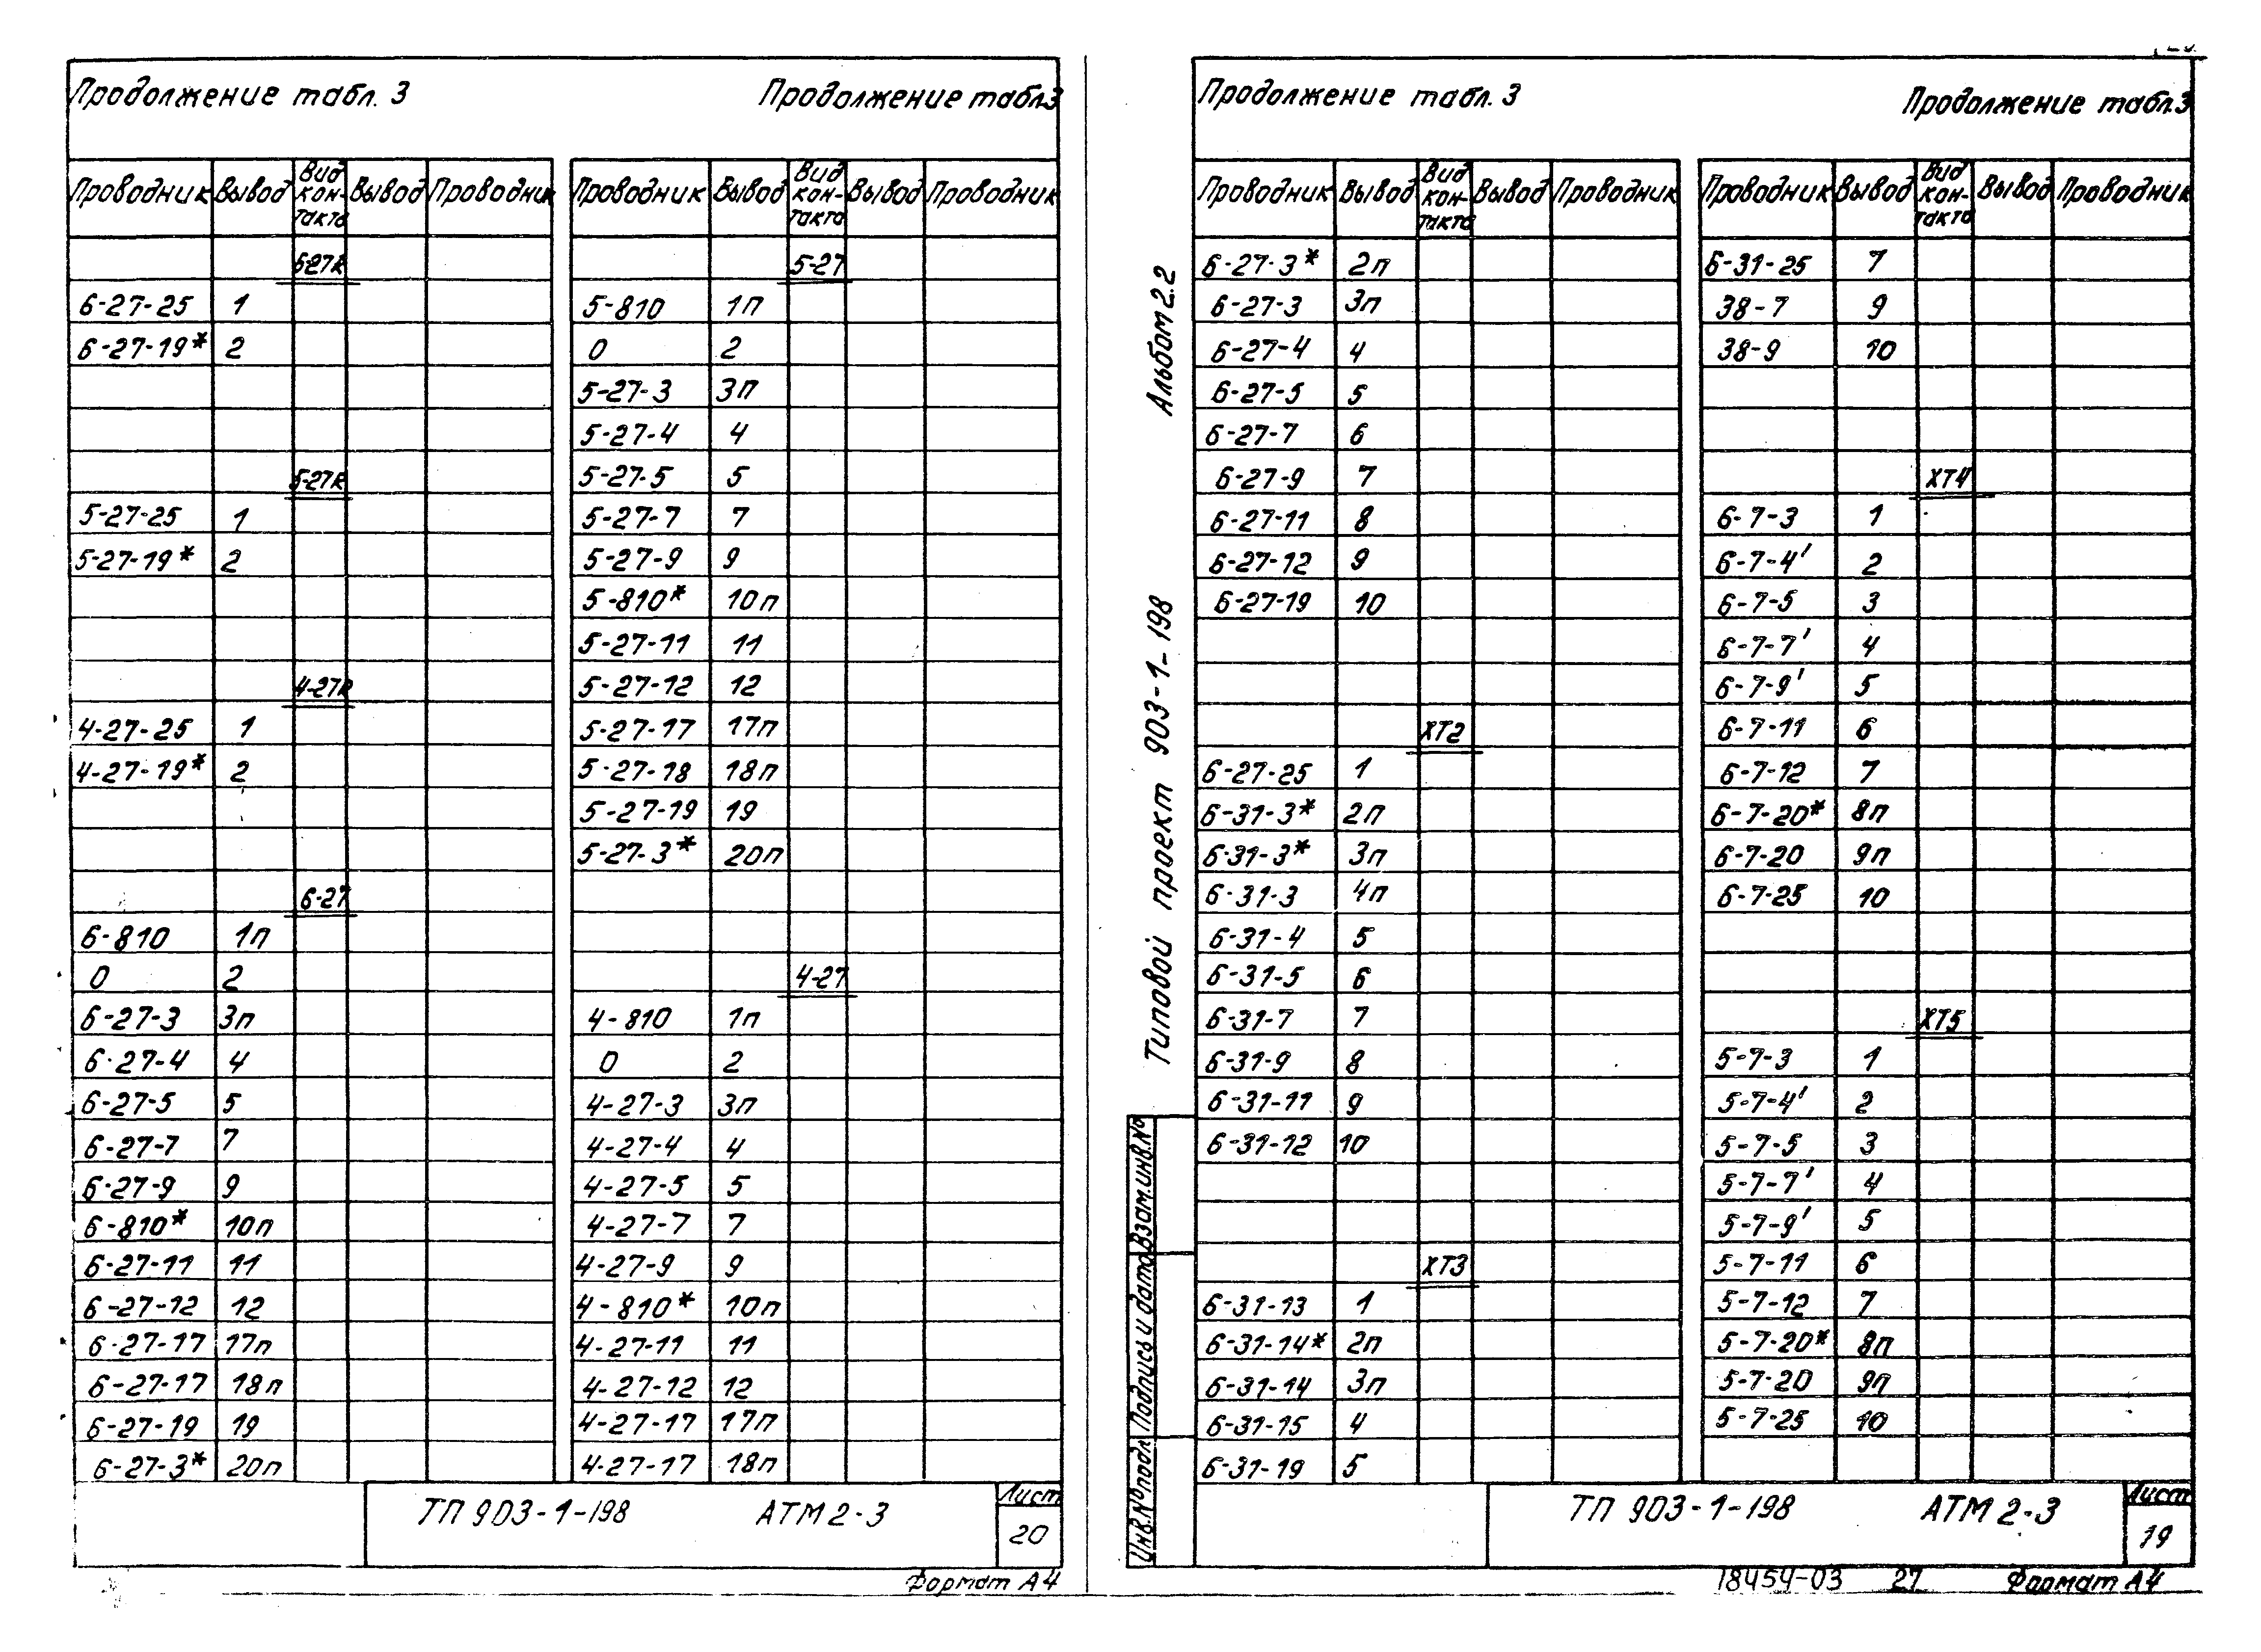 Продолжение табл. 3
Продолжение табл.3
Проводник Вывод Вид кон- такта Вывод Проводник
6-27К
6-27-25 1
6-27-19* 2
5-27К
5-27-25 1
5-27-19* 2
4-27К
4-27-25 1
4-27-19* 2
6-27
6-810 1п
0 2
6-27-3 3п
6-27-4 4
6-27-5 5
6-27-7 7
6-27-9 9
6-810* 10п
6-27-11 11
6-27-12 12
6-27-17 17п
6-27-17 18п
6-27-19 19
6-27-3* 20п
Проводник Вывод Вид кон- такта Вывод Проводник
5-27
5-810 1п
0 2
5-27-3 3п
5-27-4 4
5-27-5 5
5-27-7 7
5-27-9 9
5-810* 10п
5-27-11 11
5-27-12 12
5-27-17 17п
5-27-18 18п
5-27-19 19
5-27-3* 20п
4-27
4-810 1п
0 2
4-27-3 3п
4-27-4 4
4-27-5 5
4-27-7 7
4-27-9 9
4-810* 10п
4-27-11 11
4-27-12 12
4-27-17 17п
4-27-17 18п
ТП 903-1-198 АТМ 2-3
Лист
20
Формат А4
Альбом 2.2
Типовой проект 903-1-198
Взам.инв.№
Подпись и дата
Инв.№ подл.
Продолжение табл. 3
Продолжение табл.3
Проводник Вывод Вид кон- такта Вывод Проводник
6-27-3* 2п
6-27-3 3п
6-27-4 4
6-27-5 5
6-27-7 6
6-27-9 7
6-27-11 8
6-27-12 9
6-27-19 10
ХТ2
6-27-25 1
6-31-3* 2п
6-31-3* 3п
6-31-3 4п
6-31-4 5
6-31-5 6
6-31-7 7
6-31-9 8
6-31-11 9
6-31-12 10
ХТ3
6-31-13 1
6-31-14* 2п
6-31-14 3п
6-31-15 4
6-31-19 5
Проводник Вывод Вид кон- такта Вывод Проводник
6-31-25 7
38-7 9
38-9 10
ХТ4
6-7-3 1
6-7-4' 2
6-7-5 3
6-7-7' 4
6-7-9' 5
6-7-11 6
6-7-12 7
6-7-20* 8п
6-7-20 9п
6-7-25 10
ХТ5
5-7-3 1
5-7-4' 2
5-7-5 3
5-7-7' 4
5-7-9' 5
5-7-11 6
5-7-12 7
5-7-20* 8п
5-7-20 9п
5-7-25 10
ТП 903-1-198 АТМ 2-3
Лист
19
18454-03 27 Формат А4